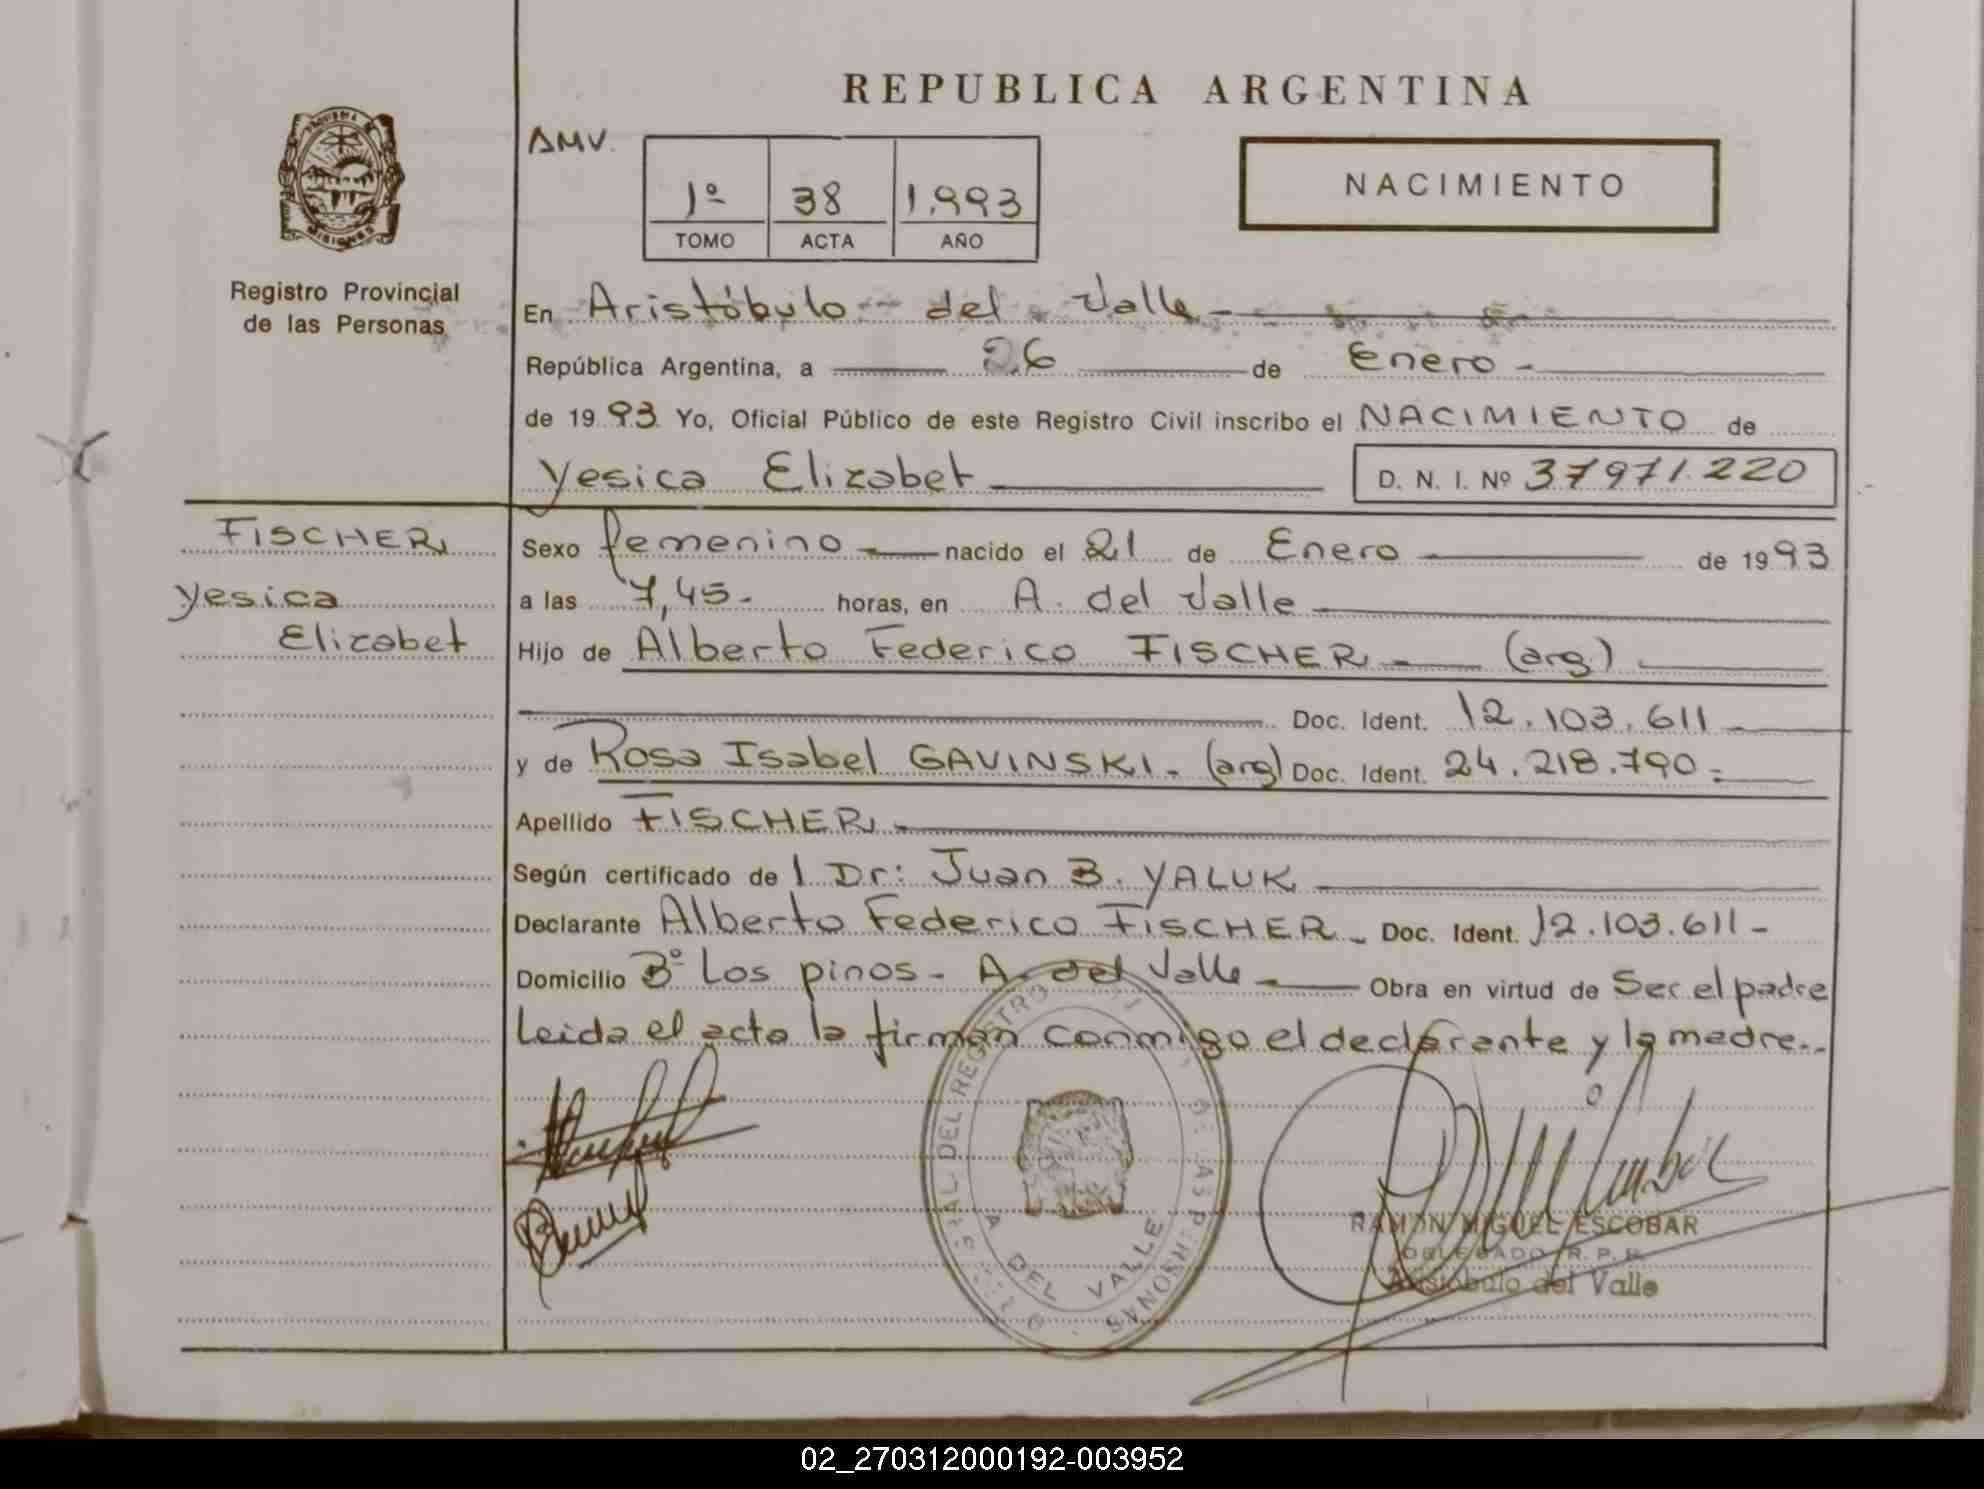 REPUBLICA ARGENTINA
AMV.
1º 38 1.993
TOMO ACTA AÑO
NACIMIENTO
MISIONES
Registro Provincial
de las Personas
En Aristóbulo del Valle
República Argentina, a 26 de Enero
de 1993 Yo, Oficial Público de este Registro Civil inscribo el NACIMIENTO de
Yesica Elizabet D. N. I. Nº 37971.220
FISCHER
Yesica
Elizabet
Sexo femenino nacido el 21 de Enero de 1993
a las 7,45- horas, en A. del Valle
Hijo de Alberto Federico FISCHER (arg)
Doc. Ident. 12.103.611
y de Rosa Isabel GAVINSKI. (arg) Doc. Ident. 24.218.790
Apellido FISCHER
Según certificado de l Dr: Juan B. YALUK
Declarante Alberto Federico FISCHER Doc. Ident. 12.103.611-
Domicilio Bº Los pinos- A. del Valle Obra en virtud de Ser el padre
Leida el acta la firman conmigo el declarante y la madre..
DEL REGISTRO
DE LAS PERSONAS
A DEL VALLE
RAMON MIGUEL ESCOBAR
DELEGADO R. P. P.
Aristóbulo del Valle
02_270312000192-003952